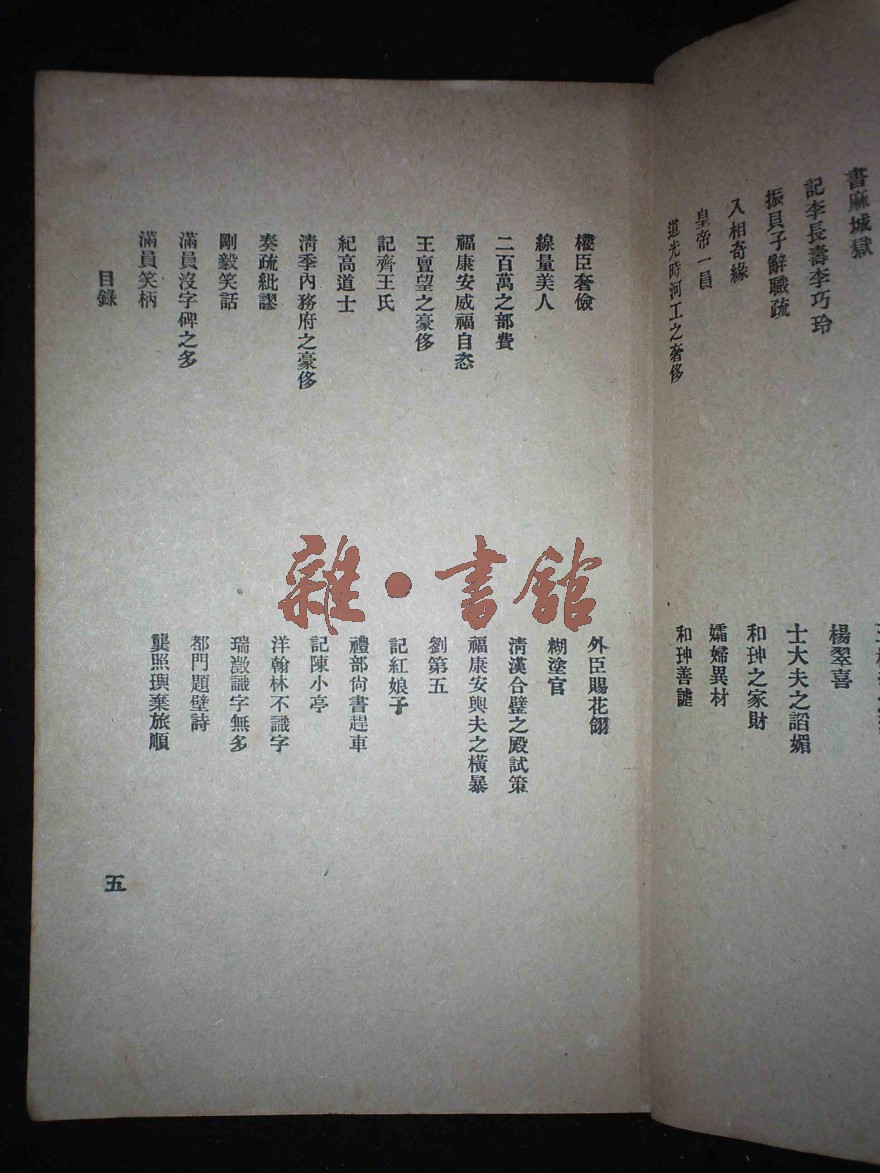 書麻城獄
記李長壽李巧玲
振貝子辭職疏
入相奇緣
皇帝一員
道光時河工之奢侈
楊翠喜
士大夫之謟媚
和珅之家財
孀婦異材
和珅善謔
樞臣奢儉
線量美人
二百萬之部費
福康安威福自恣
王亶望之豪侈
記齊王氏
紀高道士
淸季內務府之豪侈
奏疏紕謬
剛毅笑話
滿員沒字碑之多
滿員笑柄
目錄
外臣賜花翎
糊塗官
淸漢合璧之殿試策
福康安輿夫之橫暴
劉第五
記紅娘子
禮部尙書趕車
記陳小亭
洋翰林不識字
瑞澂識字無多
都門題壁詩
龔照璵棄旅順
五
雜·書館